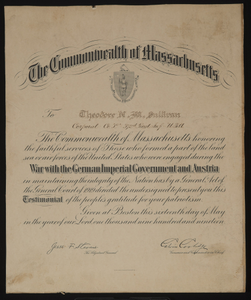 The Commonwealth of Massachusetts
To Theodore N. M. Sullivan
The Commonwealth of Massachusetts honoring
the faithful services of Those who formed a part of the land
or sea forces of the United States who were engaged during the
War with the German Imperial Government and Austria
in maintaining the integrity of the Nation has by a General Act of
the General Court of 1919 directed the undersigned to present you this
Testimonial of the people's gratitude for your patriotism
Given at Boston this seventh day of May
in the year of our Lord one thousand nine hundred and nineteen.